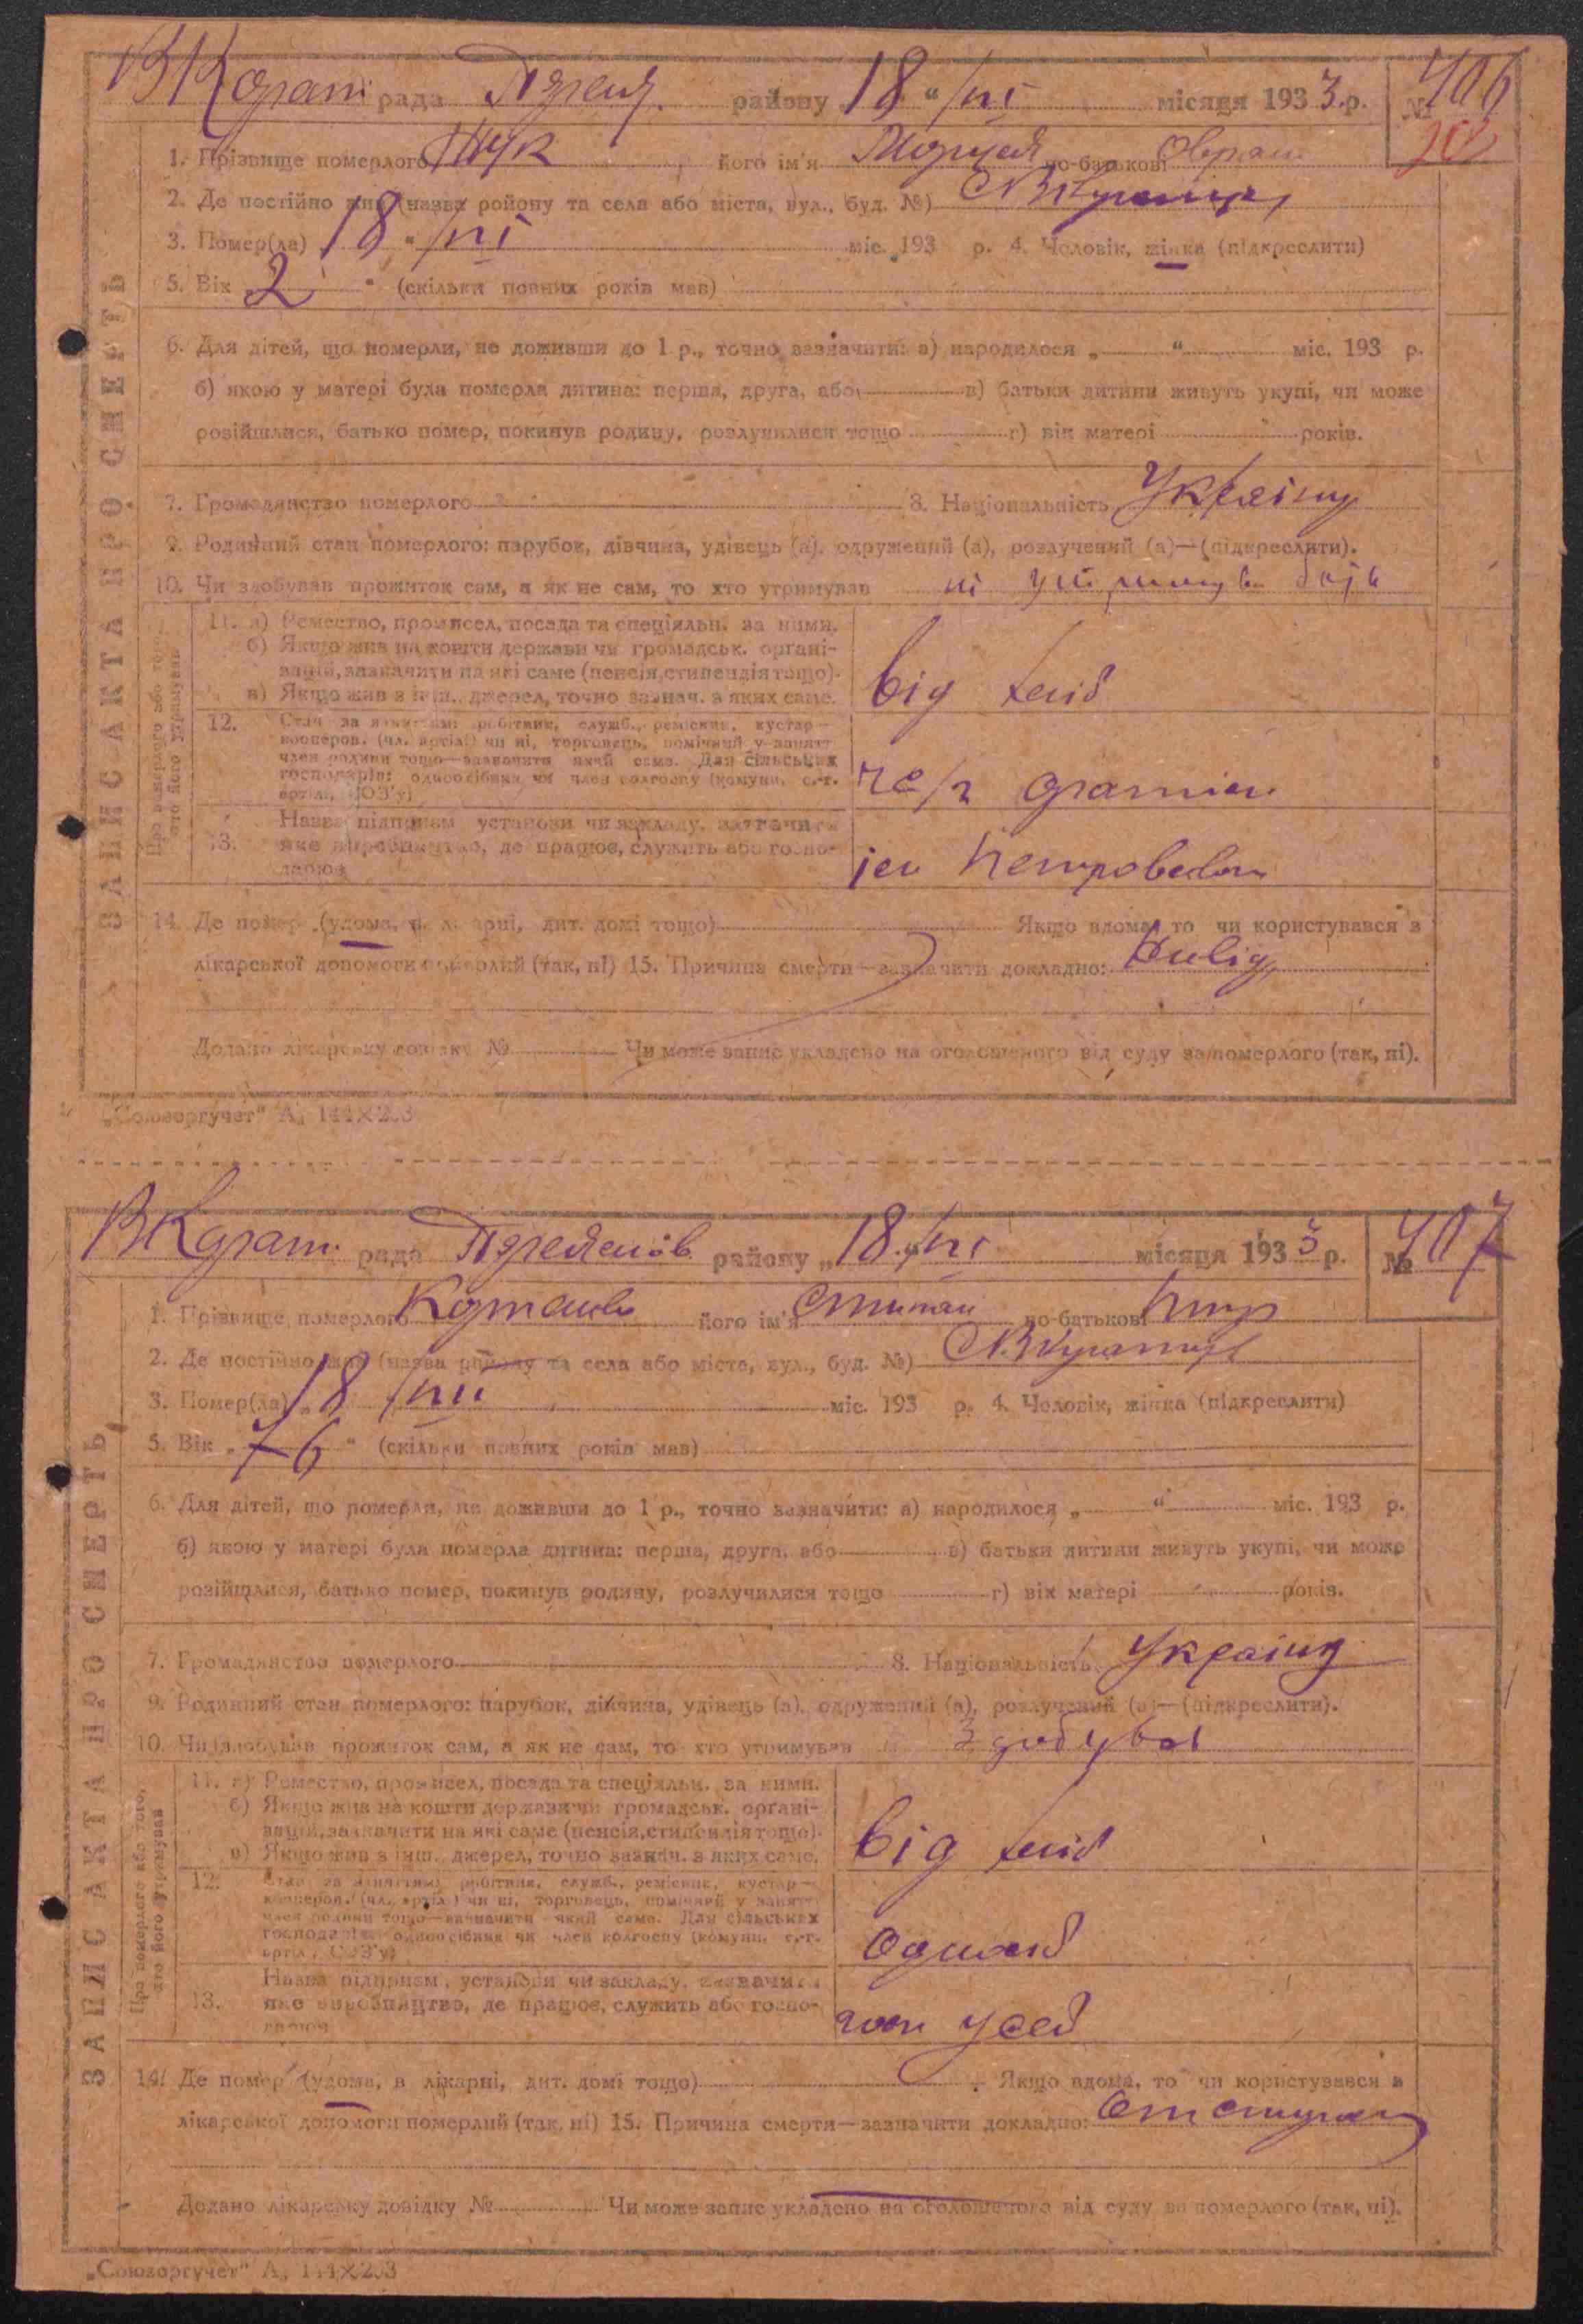 рада района 18 "/VI місяця 1933 р. № 406
1. Прізвище померлого Жук його ім'я по-батькові
2. Де постійно жив (назва району та села або міста, вул., буд. №)
3. Помер(ла) 18 "/VI міс. 193 р. 4. Чоловік, жінка (підкреслити)
5. Вік „2" (скільки повних років мав)
6. Для дітей, що померли, не доживши до 1 р., точно зазначити: а) народилося „ " міс. 193 р.
б) якою у матері була померла дитина: перша, друга, або в) батьки дитини живуть укупі, чи може
розійшлися, батько помер, покинув родину, розлучилися тощо г) вік матері років.
7. Громадянство померлого 8. Національність Україну
9. Родинний стан померлого: парубок, дівчина, удівець (а), одружений (а), розлучений (а)—(підкреслити).
10. Чи здобував прожиток сам, а як не сам, то хто утримував ні
ЗАПИС АКТА ПРО СМЕРТЬ
Про померлого або того, хто його утримував
11. а) Ремество, промисел, посада та спеціяльн. за ними.
б) Якщо жив на кошти держави чи громадськ. органі-
зацій, зазначити на які саме (пенсія, стипендія тощо).
в) Якщо жив з інш. джерел, точно зазнач. з яких саме.
від
12. Стан за заняттям: робітник, служб., ремісник, кустар—
кооперов. (чл. артілі) чи ні, торговець, помічний у занятт.
член родини тощо—зазначити який саме. Для сільських
господарів: одноосібник чи член колгоспу (комуни, с.-г.
артілі, СОЗ'у)
13. Назва підприєм. установи чи закладу, зазначити
яке виробництво, де працює, служить або госпо-
дарює
14. Де помер (удома, в лікарні, дит. домі тощо) Якщо вдома, то чи користувався з
лікарської допомоги померлий (так, ні) 15. Причина смерти—зазначити докладно:
Додано лікарську довідку № Чи може запис укладено на оголошеного від суду за померлого (так, ні).
„Союзоргучет" А₅ 144×203
рада району „18 "/VI місяця 1933 р. № 407
1. Прізвище померлого його ім'я по-батькові
2. Де постійно жив (назва району та села або міста, вул., буд. №)
3. Помер(ла) „18 міс. 193 р. 4. Чоловік, жінка (підкреслити)
5. Вік „76" (скільки повних років мав)
6. Для дітей, що померли, не доживши до 1 р., точно зазначити: а) народилося „ " міс. 193 р.
б) якою у матері була померла дитина: перша, друга, або в) батьки дитини живуть укупі, чи може
розійшлися, батько помер, покинув родину, розлучилися тощо г) вік матері років.
7. Громадянство померлого 8. Національність Україну
9. Родинний стан померлого: парубок, дівчина, удівець (а), одружений (а), розлучений (а)—(підкреслити).
10. Чи здобував прожиток сам, а як не сам, то хто утримував Здобував
ЗАПИС АКТА ПРО СМЕРТЬ
Про померлого або того, хто його утримував
11. а) Ремество, промисел, посада та спеціяльн. за ними.
б) Якщо жив на кошти держави чи громадськ. органі-
зацій, зазначити на які саме (пенсія, стипендія тощо).
в) Якщо жив з інш. джерел, точно зазнач. з яких саме.
від
12. Стан за заняттям: робітник, служб., ремісник, кустар—
кооперов. (чл. артілі) чи ні, торговець, помічний у занятт.
член родини тощо—зазначити який саме. Для сільських
господарів: одноосібник чи член колгоспу (комуни, с.-г.
артілі, СОЗ'у)
13. Назва підприєм. установи чи закладу, зазначити
яке виробництво, де працює, служить або госпо-
дарює
14. Де помер (удома, в лікарні, дит. домі тощо) Якщо вдома, то чи користувався з
лікарської допомоги померлий (так, ні) 15. Причина смерти—зазначити докладно:
Додано лікарську довідку № Чи може запис укладено на оголошеного від суду за померлого (так, ні).
„Союзоргучет" А₅ 144×203